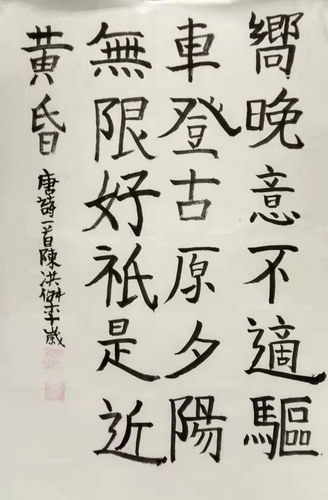 嚮晚意不適驅
車登古原夕陽
無限好祇是近
黄昏
唐詩一首陳洪